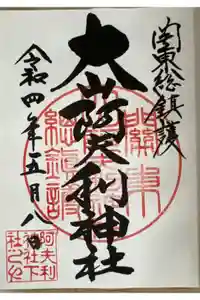 関東総鎮護
大山阿夫利神社
令和四年五月八日
關東總鎮護
阿夫利神社下社之印